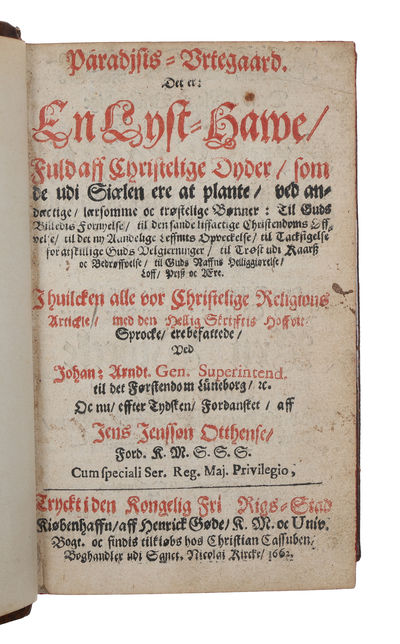 Paradjsis-Vrtegaard.
Det er:
En Lyst-Hawe/
Fuld aff Christelige Dyder/ som
de udi Siælen ere at plante/ ved an-
dæctige/ lærsomme oc trøstelige Bønner: Til Guds
Billedis Fornyelse/ til den sande liffactige Christendoms Off-
velse/ til det ny Aandelige Leffnits Opveckelse/ til Tacksigelse
for atskillige Guds Velgierninger/ til Trøst udi Kaarß
oc Bedrøffvelse/ til Guds Naffns Helliggiørelse/
Loff/ Prjß oc Ære.
I huilcken alle vor Christelige Religions
Artickle/ med den Hellig Skrifftis Hoffvit-
Sprocke/ ere befattede/
Ved
Johan: Arndt. Gen. Superintend.
til det Førstendom Lüneborg/ ec.
Oc nu/ effter Tydsken/ Fordansket/ aff
Jens Jenssøn Otthense/
Ford. K. M. S. S. S.
Cum speciali Ser. Reg. Maj. Privilegio,
Tryckt i den Kongelig Fri Rigs-Stad
Kiøbenhaffn/ aff Henrick Gøde/ K. M. oc Univ.
Bogt. oc findis til kiøbs hos Christian Cassuben/
Boghandler udi Sanct. Nicolai Kircke/ 1662.